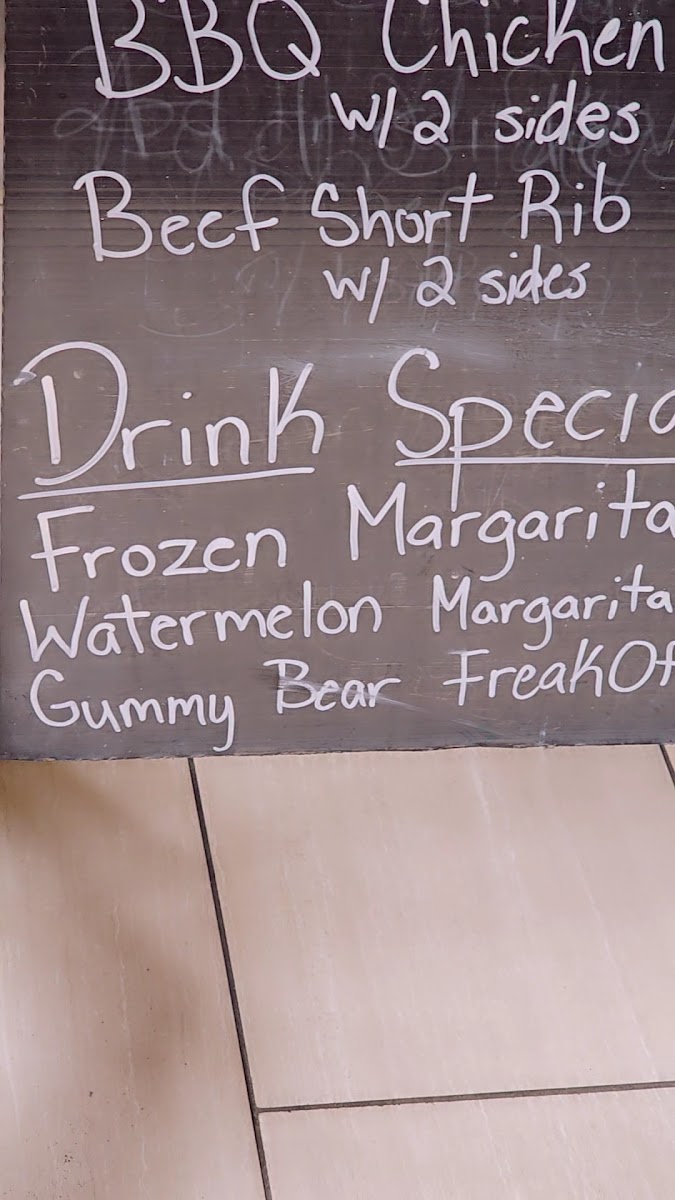 BBQ Chicken
w/ 2 sides
Beef Short Rib
w/ 2 sides
Drink Specia
Frozen Margarita
Watermelon Margarita
Gummy Bear FreakOf